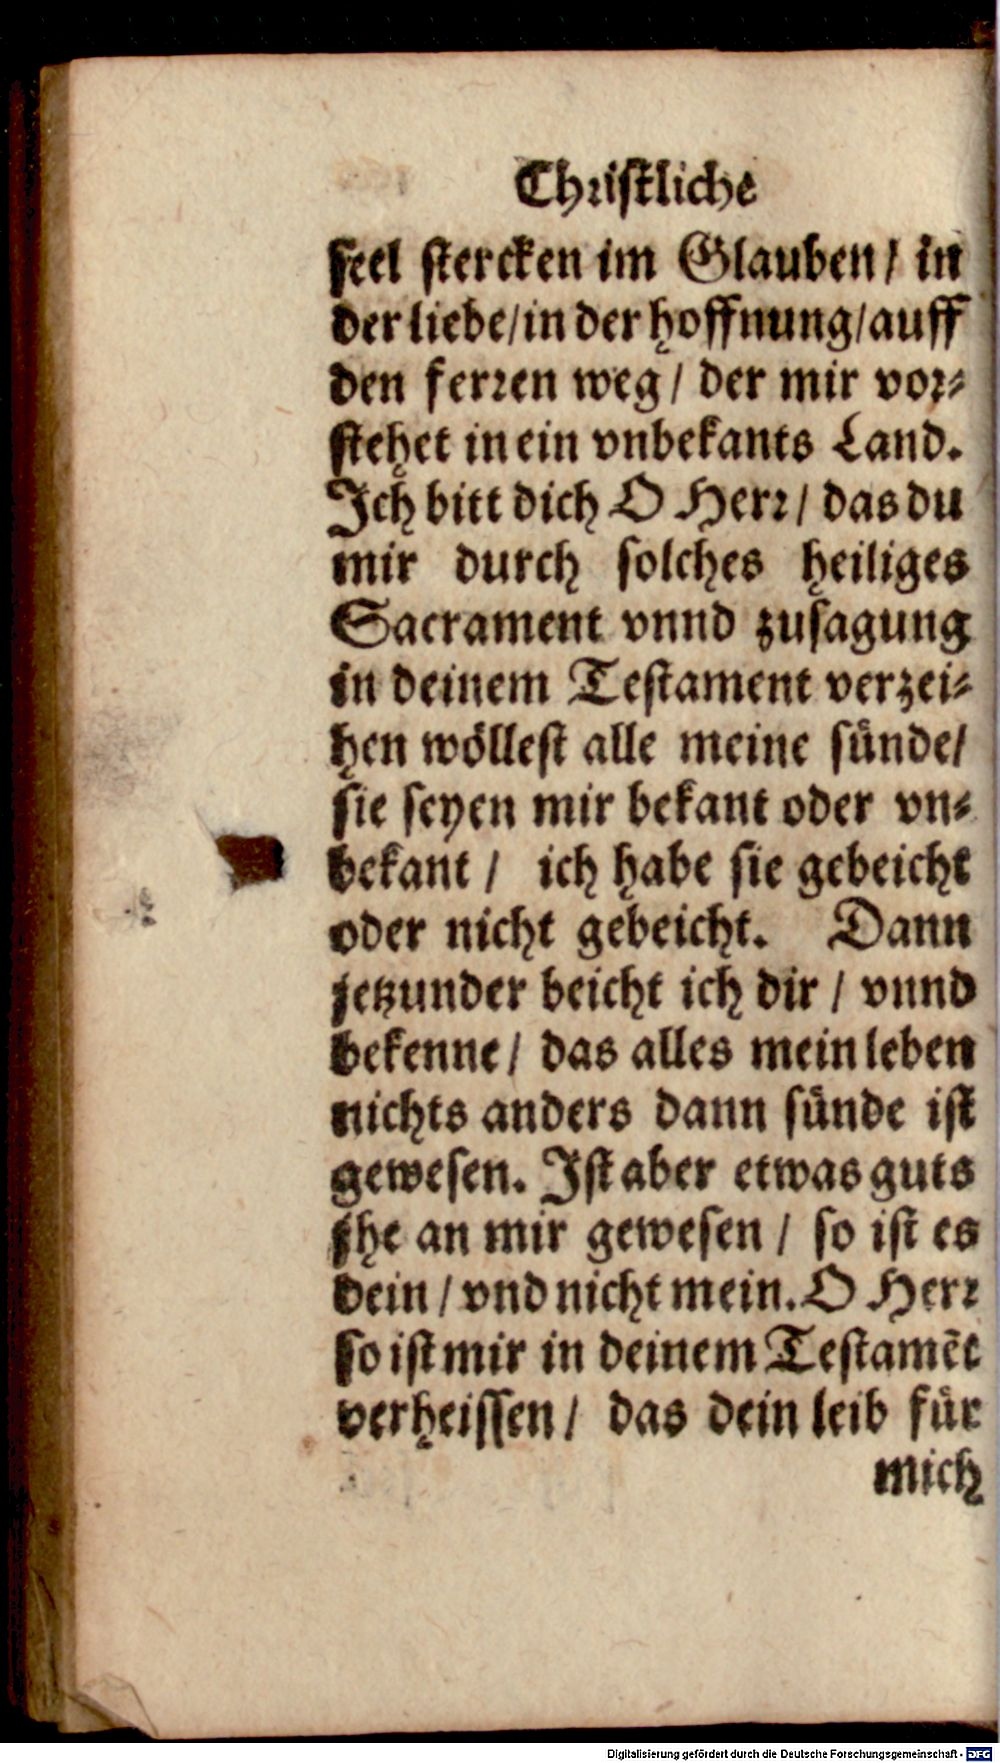 Christliche
seel stercken im Glauben / in
der liebe / in der hoffnung / auff
den ferren weg / der mir vor⸗
stehet in ein vnbekants Land.
Ich bitt dich O Herr / das du
mir durch solches heiliges
Sacrament vnnd zusagung
in deinem Testament verzei⸗
hen wöllest alle meine sünde /
sie seyen mir bekant oder vn⸗
bekant / ich habe sie gebeicht
oder nicht gebeicht. Dann
jetzunder beicht ich dir / vnnd
bekenne / das alles mein leben
nichts anders dann sünde ist
gewesen. Ist aber etwas guts
jhe an mir gewesen / so ist es
dein / vnd nicht mein. O Herr
so ist mir in deinem Testamēt
verheissen / das dein leib für
mich
Digitalisierung gefördert durch die Deutsche Forschungsgemeinschaft - DFG